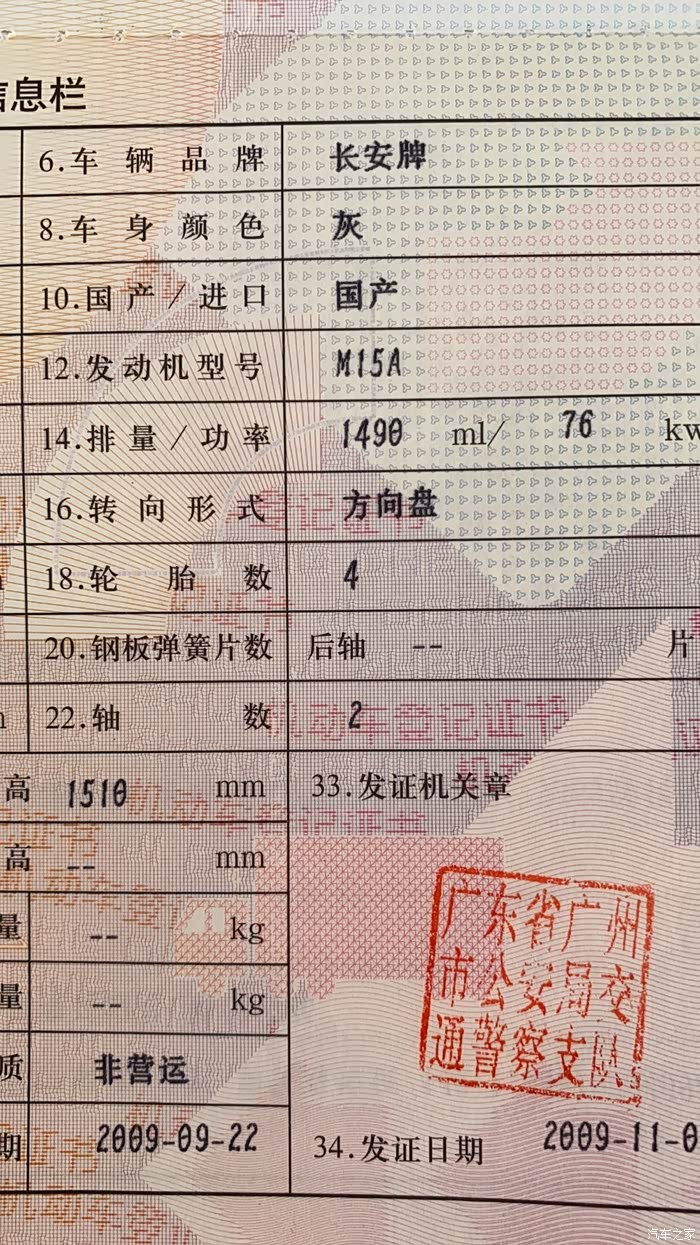 信息栏
6.车辆品牌 长安牌
8.车身颜色 灰
10.国产/进口 国产
12.发动机型号 M15A
14.排量/功率 1490 ml/ 76 kw
16.转向形式 方向盘
18.轮胎数 4
20.钢板弹簧片数 后轴 -- 片
22.轴数 2
高 1510 mm 33.发证机关章
高 -- mm
量 -- kg
量 -- kg
质 非营运
期 2009-09-22 34.发证日期 2009-11-0
广东省广州
市公安局交
通警察支队
机动车登记证书
汽车之家